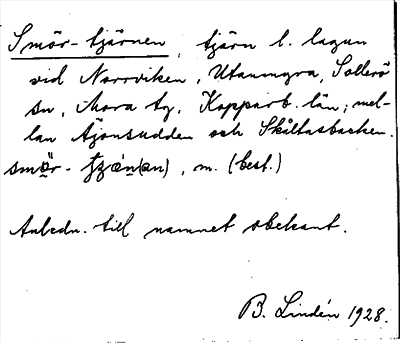 Smör-tjärnen, tjärn l. lagun
vid Norrviken, Utanmyra, Sollerö
sn, Mora tg, Kopparb. län; mel-
lan Äjonsudden och Skåltasbacken.
smör- , m. (best.)
Anledn. till namnet obekant.
B. Lindén 1928.